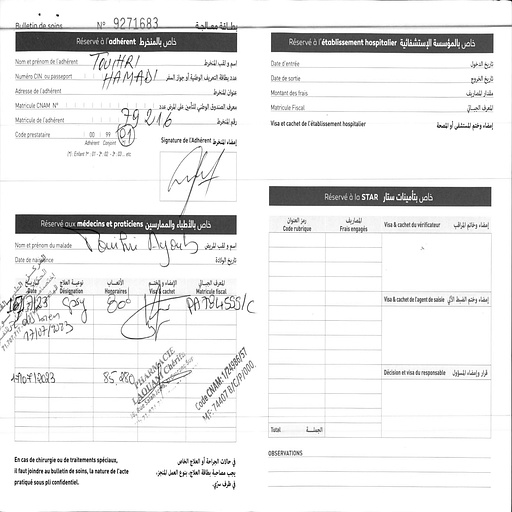 Bulletin de soins N° 9271683 بطاقة معالجة
Réservé à l'adhérent خاص بالمنخرط
Nom et prénom de l'adhérent TOUHRI اسم و لقب المنخرط
HAMADI
N° CIN ou passeport عدد بطاقة التعريف الوطنية أو جواز السفر
Adresse de l'adhérent عنوان المنخرط
Matricule CNAM N° معرف الصندوق الوطني للتأمين على المرض عدد
Matricule de l'adhérent 79216 رقم المنخرط
Code prestataire 00 99 01
Adhérent Conjoint
(*) Enfant 1er : 01 - 2e : 02 - 3e : 03 ... etc
Signature de l'Adhérent إمضاء المنخرط
Réservé aux médecins et praticiens خاص بالأطباء والممارسين
Nom et prénom du malade اسم و لقب المريض
Date de naissance تاريخ الولادة
تاريخ العلاج نوعية العلاج الأتعاب الإمضاء و الختم المعرف الجبائي
Date Désignation Honoraires Visa & cachet Matricule fiscal
17/07/2023
17/07/2023 85 280
PHARMACIE
LAOUANI Chérifa
Code CNAM:
En cas de chirurgie ou de traitements spéciaux,
il faut joindre au bulletin de soins, la nature de l'acte
pratiqué sous pli confidentiel.
في حالات الجراحة أو العلاج الخاص
يجب مصاحبة بطاقة العلاج، بنوع العمل المنجز،
في ظرف سري.
Réservé à l'établissement hospitalier خاص بالمؤسسة الإستشفائية
Date d'entrée تاريخ الدخول
Date de sortie تاريخ الخروج
Montant des frais مقدار المصاريف
Matricule Fiscal المعرف الجبائي
Visa et cachet de l'établissement hospitalier إمضاء وختم المستشفى أو المصحة
Réservé à la STAR خاص بتأمينات ستار
رمز العنوان المصاريف
Code rubrique Frais engagés Visa & cachet du vérificateur إمضاء وختم المراقب
Visa & cachet de l'agent de saisie
Décision et visa du responsable قرار وإمضاء المسؤول
Total الجملة
OBSERVATIONS